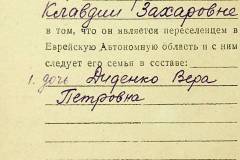 Клавдии Захаровне
в том, что он является переселенцем в
Еврейскую Автономную область и с ним
следует его семья в составе:
1. дочь Диденко Вера
Петровна